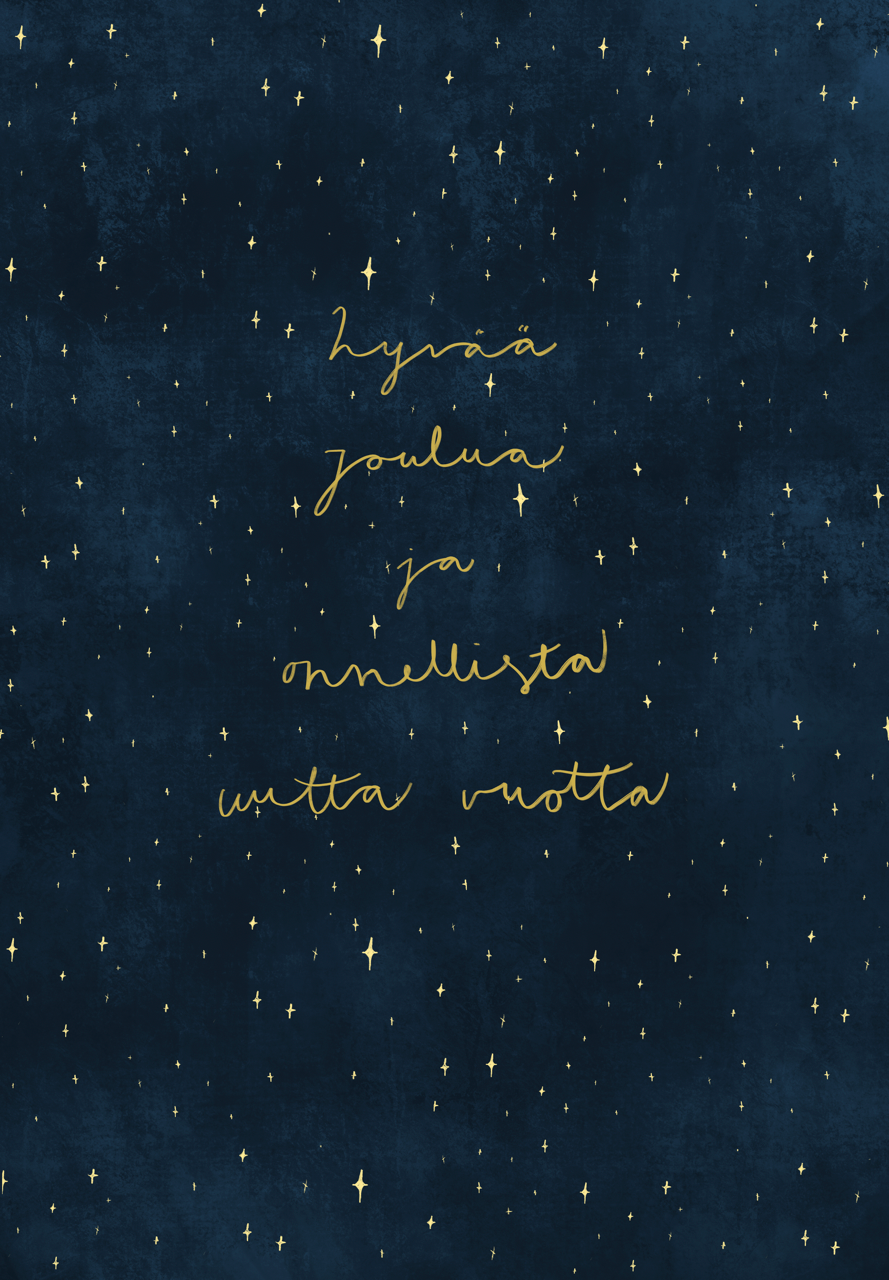 hyvää
joulua
ja
onnellista
uutta vuotta